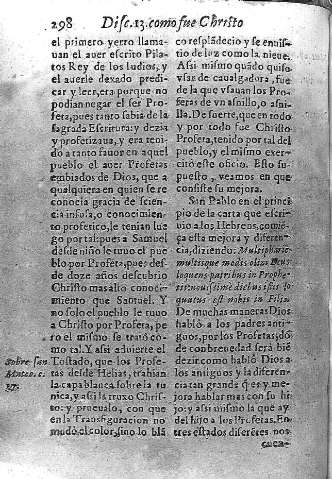 298 Disc. 13. como fue Christo
el primero yerro llama-
uan el auer escrito Pila-
tos Rey de los Iudios, y
el auerle dexado predi-
car y leer, era porque no
podian negar el ser Pro-
feta, pues tanto sabia de la
sagrada Escritura: y dezia
y profetizaua, y era teni-
do a tanto fauor en aquel
pueblo el auer Profetas
embiados de Dios, que a
qualquiera en quien se re
conocia gracia de scien-
cia infusa, o conocimiento
profetico, le tenian lue
go por tal: pues a Samuel
desde niño le tuuo el pue
blo por Profeta, pues des-
de doze años descubrio
Christo mas alto conoci-
miento que Samuel. Y
no solo el pueblo le tuuo
a Christo por Profeta, pe
ro el mismo se trató co-
mo tal. Y assi aduierte el
Tostado, que los Profe-
tas desde Helias, trahian
la capa blanca sobre la tu
nica, y assi la truxo Chris-
to: y prueualo, con que
en la Transfiguracion no
mudó el color, sino lo blã
Sobre san
Mateo. c.
co resplãdecio y se enuis-
tio de luz como la nieue.
Assi mismo quãdo quiso
vsar de caualgadura, fue
de la que vsauan los Pro-
fetas de vn asnillo, o asni-
lla. De suerte, que en todo
y por todo fue Christo
Profeta, tenido por tal del
pueblo, y el mismo exer-
citó este oficio. Esto su-
puesto, veamos en que
consiste su mejora.
San Pablo en el princi
pio de la carta que escri-
uio a los Hebreos, comiẽ-
ça esta mejora y diferen-
cia, diziendo: Multipharie
multisque modis olim Deus
loquens patribus in Prophe-
tis: nouissime diebus istis lo
quutus est nobis in Filio.
De muchas maneras Dios
habló a los padres anti-
guos, por los Profetas; dõ
de con breuedad será biẽ
dezir como habló Dios a
los antiguos y la diferen-
cia tan grande q̃ es y me-
jora hablar mas con su hi
jo: y assi mismo la que ay
del hijo a los Profetas. En
tres estados diferẽtes nos
cuen-